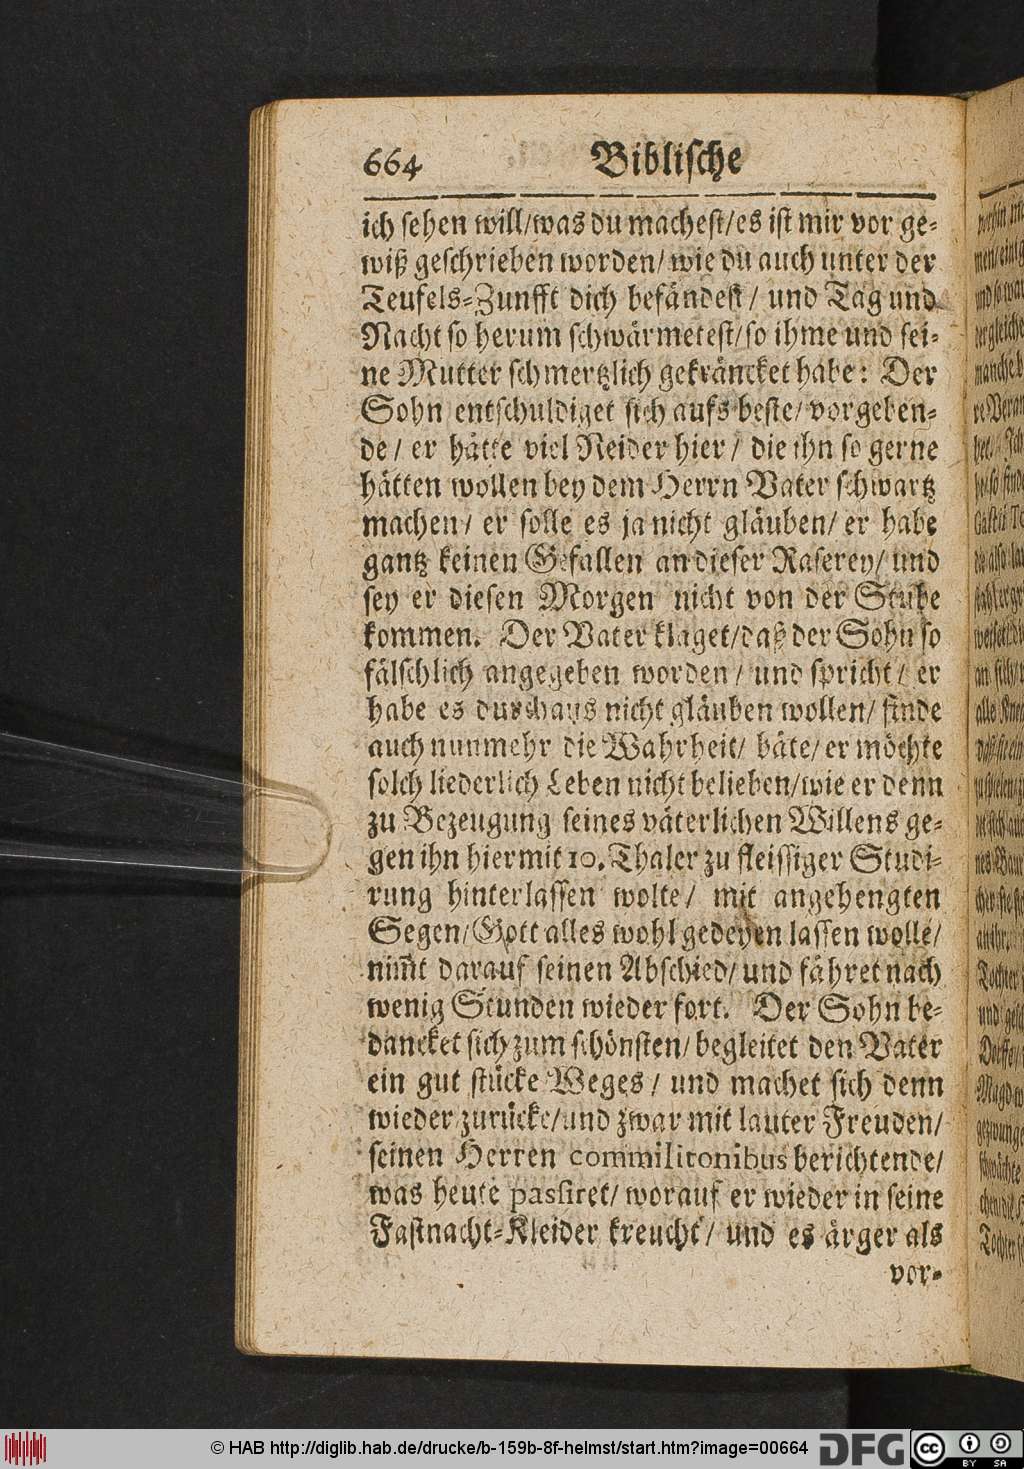 664 Biblische
ich sehen will/was du machest/es ist mir vor ge-
wiß geschrieben worden/ wie du auch unter der
Teufels-Zunfft dich befändest/ und Tag und
Nacht so herum schwärmetest/so ihme und sei-
ne Mutter schmertzlich gekräncket habe: Der
Sohn entschuldiget sich aufs beste/ vorgeben-
de/ er hätte viel Neider hier/ die ihn so gerne
hätten wollen bey dem Herrn Vater schwartz
machen/ er solle es ja nicht gläuben/ er habe
gantz keinen Gefallen an dieser Raserey/ und
sey er diesen Morgen nicht von der Stube
kommen. Der Vater klaget/daß der Sohn so
fälschlich angegeben worden/ und spricht/ er
habe es durchaus nicht gläuben wollen/ finde
auch nunmehr die Wahrheit/ bäte/ er möchte
solch liederlich Leben nicht belieben/wie er denn
zu Bezeugung seines väterlichen Willens ge-
gen ihn hiermit 10. Thaler zu fleissiger Studi-
rung hinterlassen wolte/ mit angehengten
Segen/Gott alles wohl gedeyen lassen wolle/
nim̃t darauf seinen Abschied/ und fähret nach
wenig Stunden wieder fort. Der Sohn be-
dancket sich zum schönsten/ begleitet den Vater
ein gut stücke Weges/ und machet sich denn
wieder zurücke/und zwar mit lauter Freuden/
seinen Herren commilitonibus berichtende/
was heute passiret/ worauf er wieder in seine
Fastnacht-Kleider kreucht/ und es ärger als
vor-
© HAB http://diglib.hab.de/drucke/b-159b-8f-helmst/start.htm?image=00664
DFG
cc BY SA